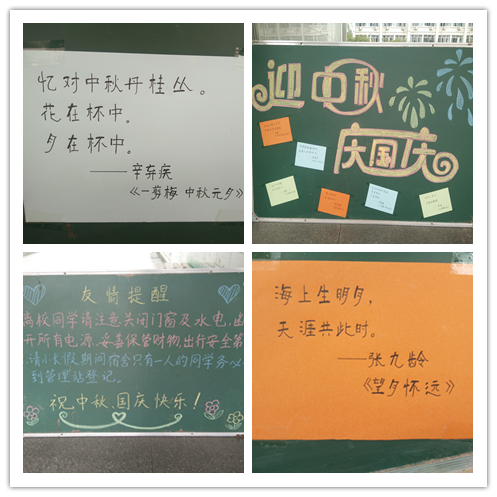 忆对中秋丹桂丛。
花在杯中。
月在杯中。
——辛弃疾
《一剪梅 中秋元夕》
迎中秋
庆国庆
友情提醒
离校同学请注意关闭门窗及水电,
开所有电源、妥善保管财物,出行安全第
请小长假期间宿舍只有一人的同学务必
到管理站登记。
祝中秋、国庆快乐!
海上生明月,
天涯共此时。
——张九龄
《望月怀远》